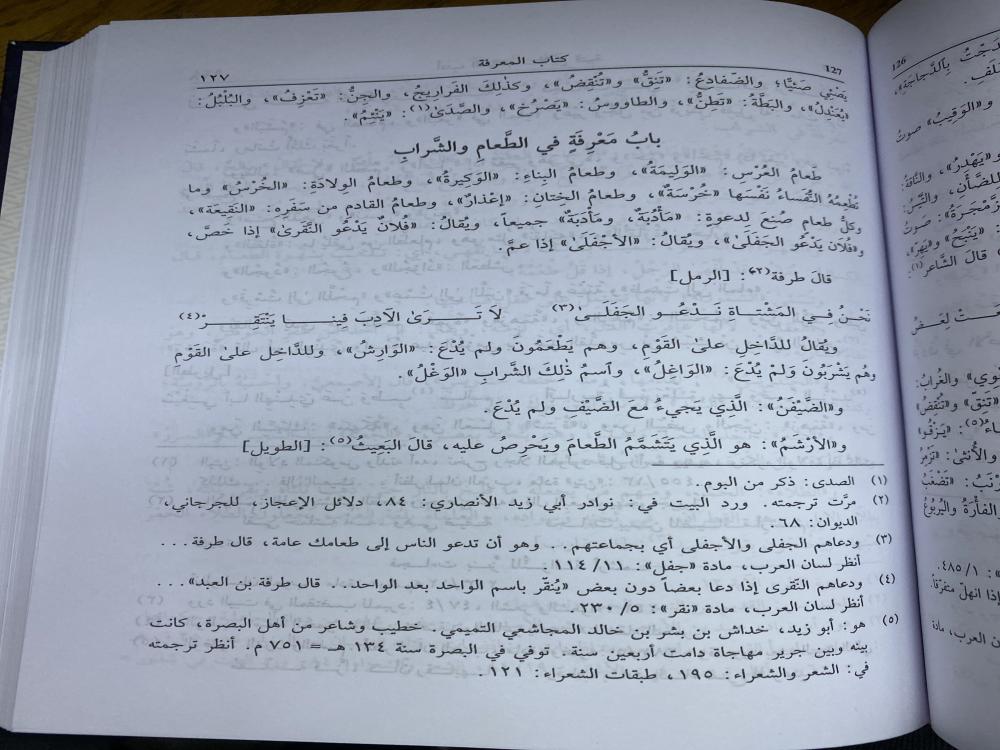 127 كتاب المعرفة ١٢٧
يَضْئِي صَئِيًّا؛ والضّفادعُ: «تَنِقُّ» و«تُنْقِضُ»، وكَذٰلكَ الفَراريجُ، والجِنُّ: «تَعْزِفُ»، والبُلْبُلُ:
«يُعَنْدِلُ»، والبَطَّةُ: «تَطِنُّ»، والطاووسُ: «يَصْرُخ»، والصَّدَىٰ(١): «يَنْئِمُ».
بابُ مَعْرِفَةٍ في الطَّعامِ والشَّرابِ
طَعامُ العُرْسِ: «الوَلِيمَةُ»، وطَعامُ البِناءِ: «الوَكِيرَةُ»، وطعامُ الوِلادَةِ: «الخُرْسُ» وما
تُطْعِمُهُ النُّفَساءُ نَفْسَها «خُرْسَةٌ»، وطعامُ الخِتانِ: «إعْذارٌ»، وطعامُ القادِمِ من سَفَرِه: «النَقِيعَة»،
وكلُّ طعامٍ صُنِعَ لِدعوةٍ: «مَأدُبَةٌ، ومَأدَبَةٌ» جميعاً، ويُقالُ: «فُلانٌ يَدْعُو النَّقَرىٰ» إذا خَصَّ،
و«فُلَان يَدْعُو الجَفَلَىٰ»، ويُقالُ: «الأجْفَلَىٰ» إذا عمَّ.
قالَ طرفة(٢): [الرمل]
نَحْنُ فِي المَشْتَاةِ نَدْعُو الجَفَلَىٰ(٣) لاَ تَرَىٰ الآدِبَ فِينَا يَنْتَقِرْ(٤)
ويُقالُ للدَّاخِلِ علىٰ القَوْمِ، وهم يَطْعَمُونَ ولم يُدْعَ: «الوَارِشُ»، وللدَّاخِل علىٰ القَوْمِ
وهُم يَشْرَبُون وَلمْ يُدْعَ: «الوَاغِلُ»، وٱسمُ ذٰلِكَ الشَّرابِ «الوَغْلُ».
و«الضَّيْفَنُ»: الَّذِي يَجيءُ معَ الضَّيْفِ ولم يُدْعَ.
و«الأرْشَمُ»: هو الَّذِي يَتَشَمَّمُ الطَّعامَ ويَحْرِصُ عليه، قالَ البَعِيثُ(٥): [الطويل]
(١) الصدى: ذكر من البوم.
(٢) مرَّت ترجمته. ورد البيت في: نوادر أبي زيد الأنصاري: ٨٤، دلائل الإعجاز، للجرجاني،
الديوان: ٦٨.
(٣) ودعاهم الجفلى والأجفلى أي بجماعتهم.. وهو أن تدعو الناس إلى طعامك عامة، قال طرفة...
أنظر لسان العرب، مادة «جفل»: ١١٤/١١.
(٤) ودعاهم النّقرى إذا دعا بعضاً دون بعض «يُنقّر باسم الواحد بعد الواحد.. قال طرفة بن العبد»...
أنظر لسان العرب، مادة «نقر»: ٢٣٠/٥.
(٥) هو: أبو زيد، خداش بن بشر بن خالد المجاشعي التميمي. خطيب وشاعر من أهل البصرة، كانت
بينه وبين جرير مهاجاة دامت أربعين سنة. توفي في البصرة سنة ١٣٤ هـ = ٧٥١ م. أنظر ترجمته
في: الشعر والشعراء: ١٩٥، طبقات الشعراء: ١٢١.
126